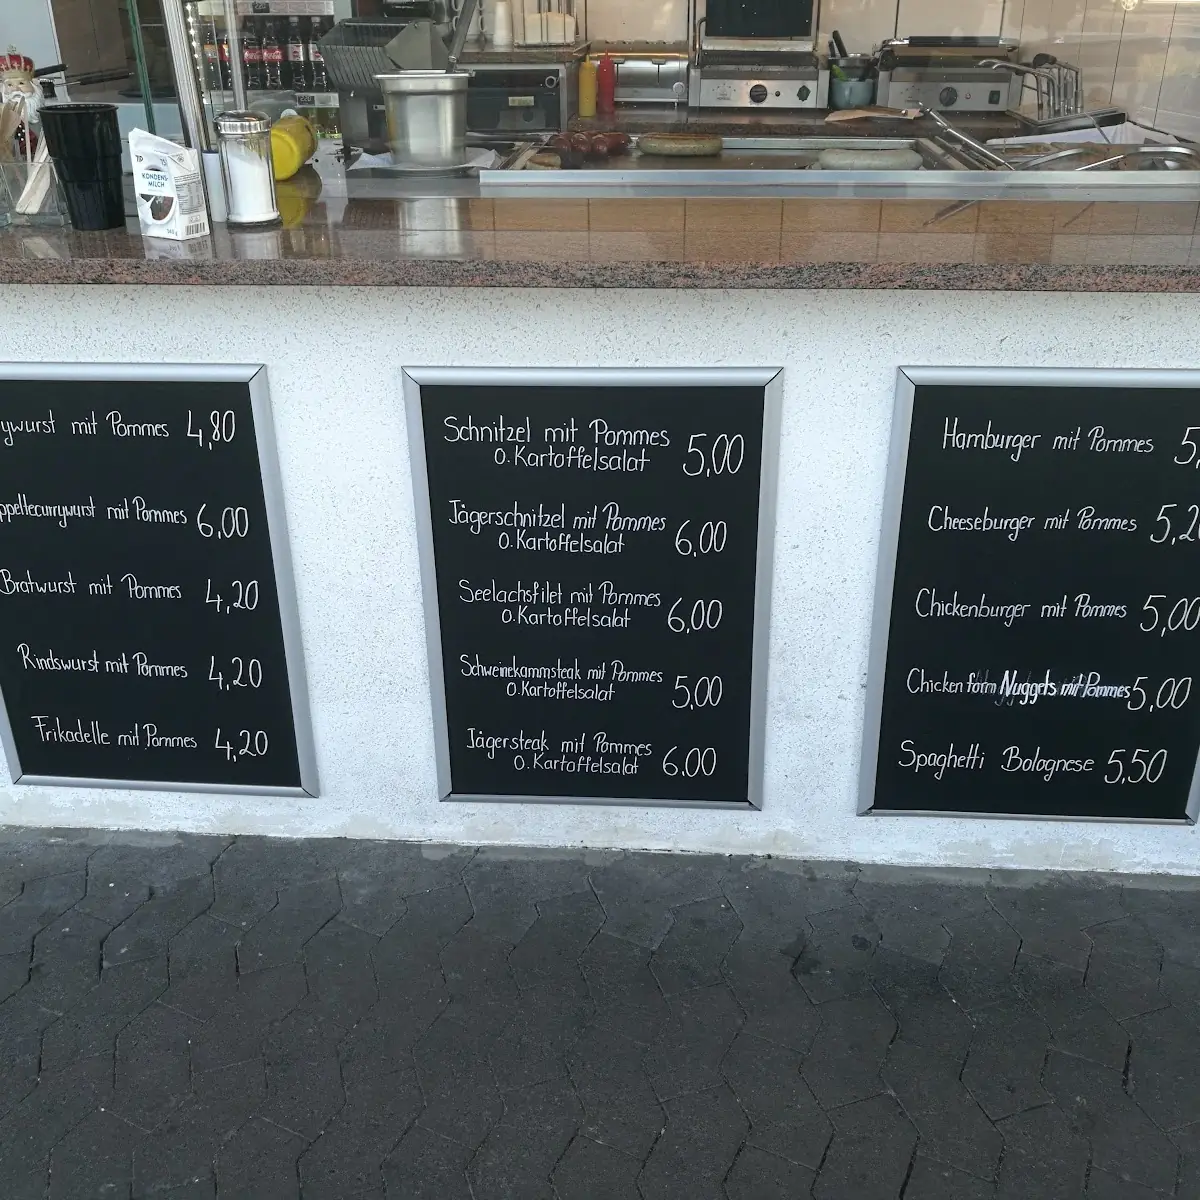 KONDENS-
MILCH
ywurst mit Pommes 4,80
ppeltecurrywurst mit Pommes 6,00
Bratwurst mit Pommes 4,20
Rindswurst mit Pommes 4,20
Frikadelle mit Pommes 4,20
Schnitzel mit Pommes
o. Kartoffelsalat 5,00
Jägerschnitzel mit Pommes
o. Kartoffelsalat 6,00
Seelachsfilet mit Pommes
o. Kartoffelsalat 6,00
Schweinekammsteak mit Pommes
o. Kartoffelsalat 5,00
Jägersteak mit Pommes
o. Kartoffelsalat 6,00
Hamburger mit Pommes 5,
Cheeseburger mit Pommes 5,20
Chickenburger mit Pommes 5,00
Chicken Nuggets mit Pommes 5,00
Spaghetti Bolognese 5,50